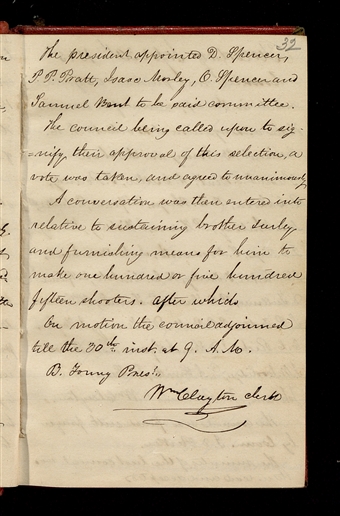 32
The president appointed D. Spencer,
P. P. Pratt, Isaac Morley, O. Spencer and
Samuel Bent to be said committee.
The council being called upon to sig-
=nify their approval of this selection, a
vote was taken, and agreed to unanimously.
A conversation was then entered into
relative to sustaining brother Turley
and furnishing means for him to
make one hundred or five hundred
fifteen shooters. after which
On motion the council adjourned
till the 30th inst. at 9. A. M.
B. Young Prest.
Wm Clayton clerk